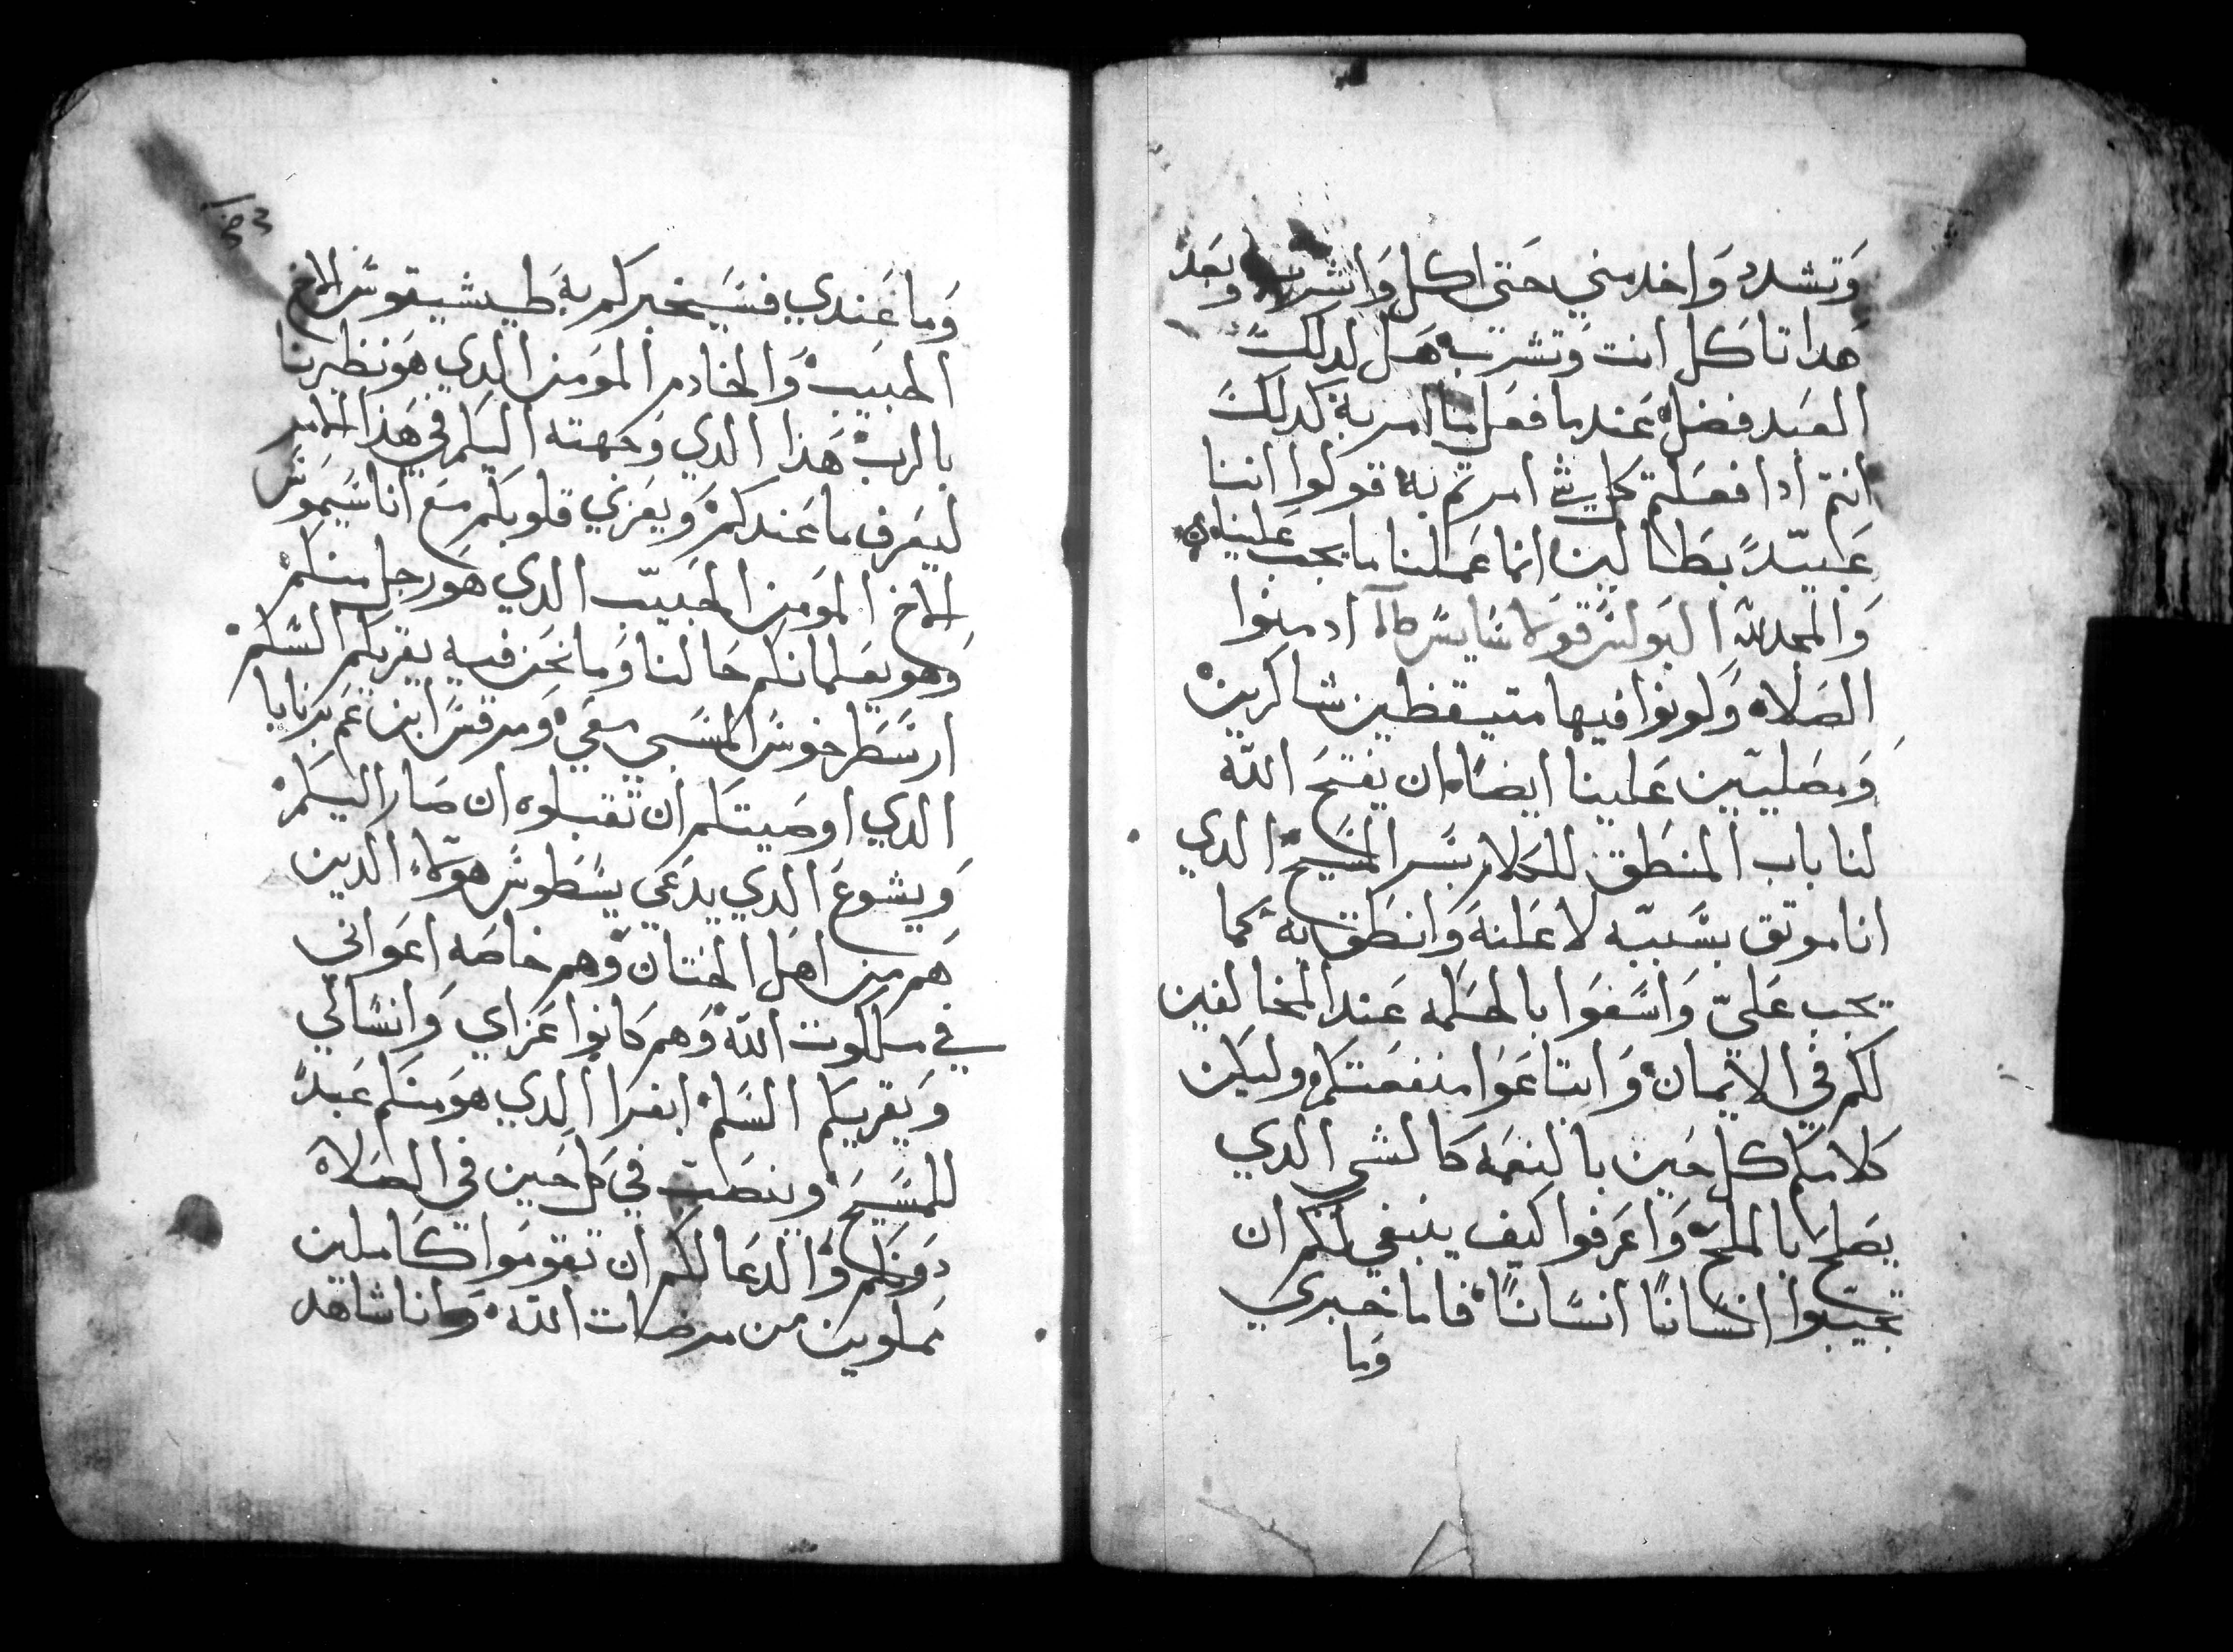 وَتشدد وَاخدمني حَتى اكل وَاشرب وبَعد
هَدا تاكل انت وَتشرب هَل لدلك
العَبد فضل عَندما فعَل ما امر به كدلك
انتم ادا فعَلتم كل شي امرتم به قولوا اننا
عَبيدً بَطالين انما عَملنا ما يجب عَلينا
وَالمجد لله البَولس قولاسَايسَ ادمنوا
الصَلاه وَكونوا فيها متيقظين شاكرين
وَمصَليين عَلينا ايضَا ان يفتح الله
لنا باب المنطَق للكلام بسَر المسَيح الدي
انا موتق بسَببه لاعَلنه وَانطَق به كما
يجب عَليّ وَاسَعَوا بالحكمه عَند المخالفين
لكم في الايمان وَابتاعَوا منفعَتكم وليكن
كلامكم كل حَين بالنعَمه كالشي الدي
يصَلح بالملح وَاعَرفوا كيف ينبغي لكم ان
تجيبوا انسَانًا انسَانًا فاما خبري
وَما
83
وَما عَندي فسَيخبركم به طيشيقوسَ الاخ
الحبيب وَالخادم المومن الدي هوَ نظيرنا
بالرب هَذا الدي وَجهته اليكم في هَذا الامر
ليعَرف ما عَندكم وَيعَزي قلوبكم معَ اناسَيموسَ
الاخ المومن الحبيب الدي هوَ رجل منكم
وَهو يعَلمانكم حَالنا وَما نحَن فيه يقريكم السَلام
ارسَطَرخوسَ المسَبي معَي وَمرقسَ ابن عَم برنابا
الدي اوصَيتكم ان تقبلوه ان صَار اليكم
وَيشوعَ الدي يدعَى يسَطوسَ هوَلاء الدين
هَم من اهَل الختان وَهم خاصَه اعَواني
في مَلكوت الله وَهم كانوا عَزاي وَانسَا لي
وَيقريكم السَلم ابفرا الدي هوَ منكم عَبدً
للمسَيح وينصَت في كل حَين في الصَلاه
دونكم وَالدعَا لكم ان تقوموا كاملين
مملوين من مرضَات الله وَانا شاهد